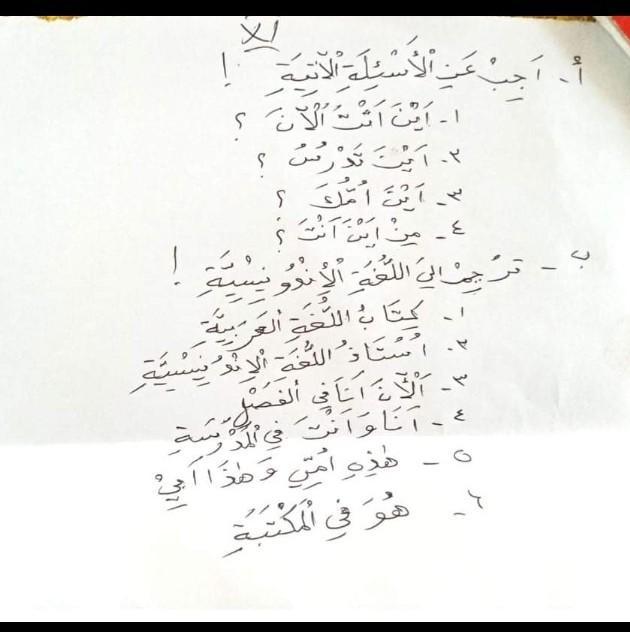 أ - اَجِبْ عَنِ الْأَسْئِلَةِ الْآتِيَةِ !
١- اَيْنَ اَنْتَ الْآنَ ؟
٢- اَيْنَ تَدْرُسُ ؟
٣- اَيْنَ اُمُّكَ ؟
٤- مِنْ اَيْنَ اَنْتَ ؟
ب - تَرْجِمْ اِلَى اللُّغَةِ الْأِنْدُونِيْسِيَّةِ !
١- كِتَابُ اللُّغَةِ الْعَرَبِيَّةِ
٢- اُسْتَاذُ اللُّغَةِ الْاِنْدُنِيْسِيَّةِ
٣- اَلْآنَ اَنَا فِي الْفَصْلِ
٤- اَنَا وَ اَنْتَ فِي الْمَدْرَسَةِ
٥- هٰذِهِ اُمِّيْ وَ هٰذَا اَبِيْ
٦- هُوَ فِي الْمَكْتَبَةِ